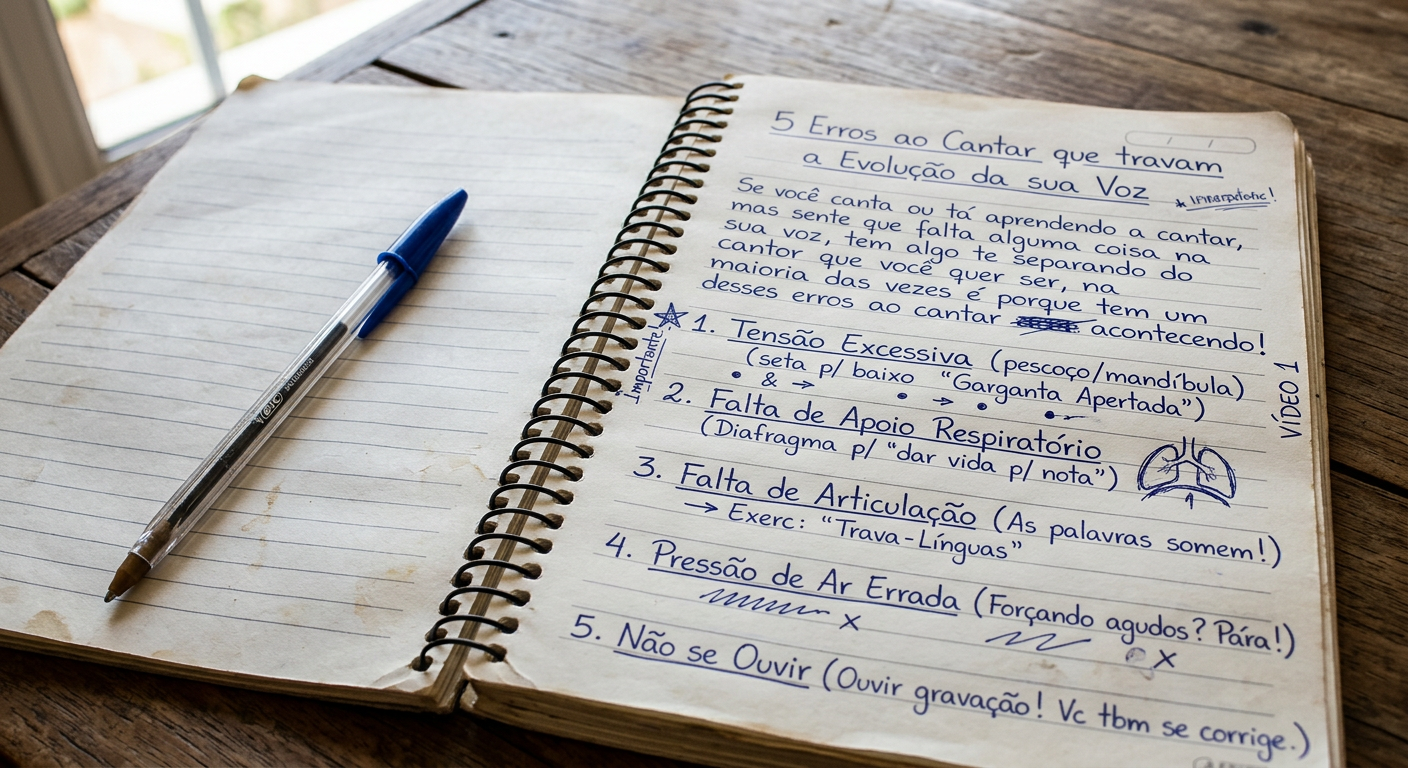 5 Erros ao Cantar que travam
a Evolução da sua Voz
Se você canta ou tá aprendendo a cantar,
mas sente que falta alguma coisa na
sua voz, tem algo te separando do
cantor que você quer ser, na
maioria das vezes é porque tem um
desses erros ao cantar acontecendo!
Importante!
1. Tensão Excessiva (pescoço/mandíbula)
(seta p/ baixo "Garganta Apertada")
• & → • → • •
VÍDEO 1
2. Falta de Apoio Respiratório
(Diafragma p/ "dar vida p/ nota")
3. Falta de Articulação (As palavras somem!)
→ Exerc: "Trava-Línguas"
4. Pressão de Ar Errada (Forçando agudos? Pára!)
x x
5. Não se Ouvir (Ouvir gravação! Vc tbm se corrige.)